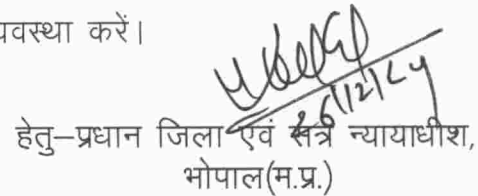 यवस्था करें।
26/12/24
हेतु–प्रधान जिला एवं सत्र न्यायाधीश,
भोपाल(म.प्र.)